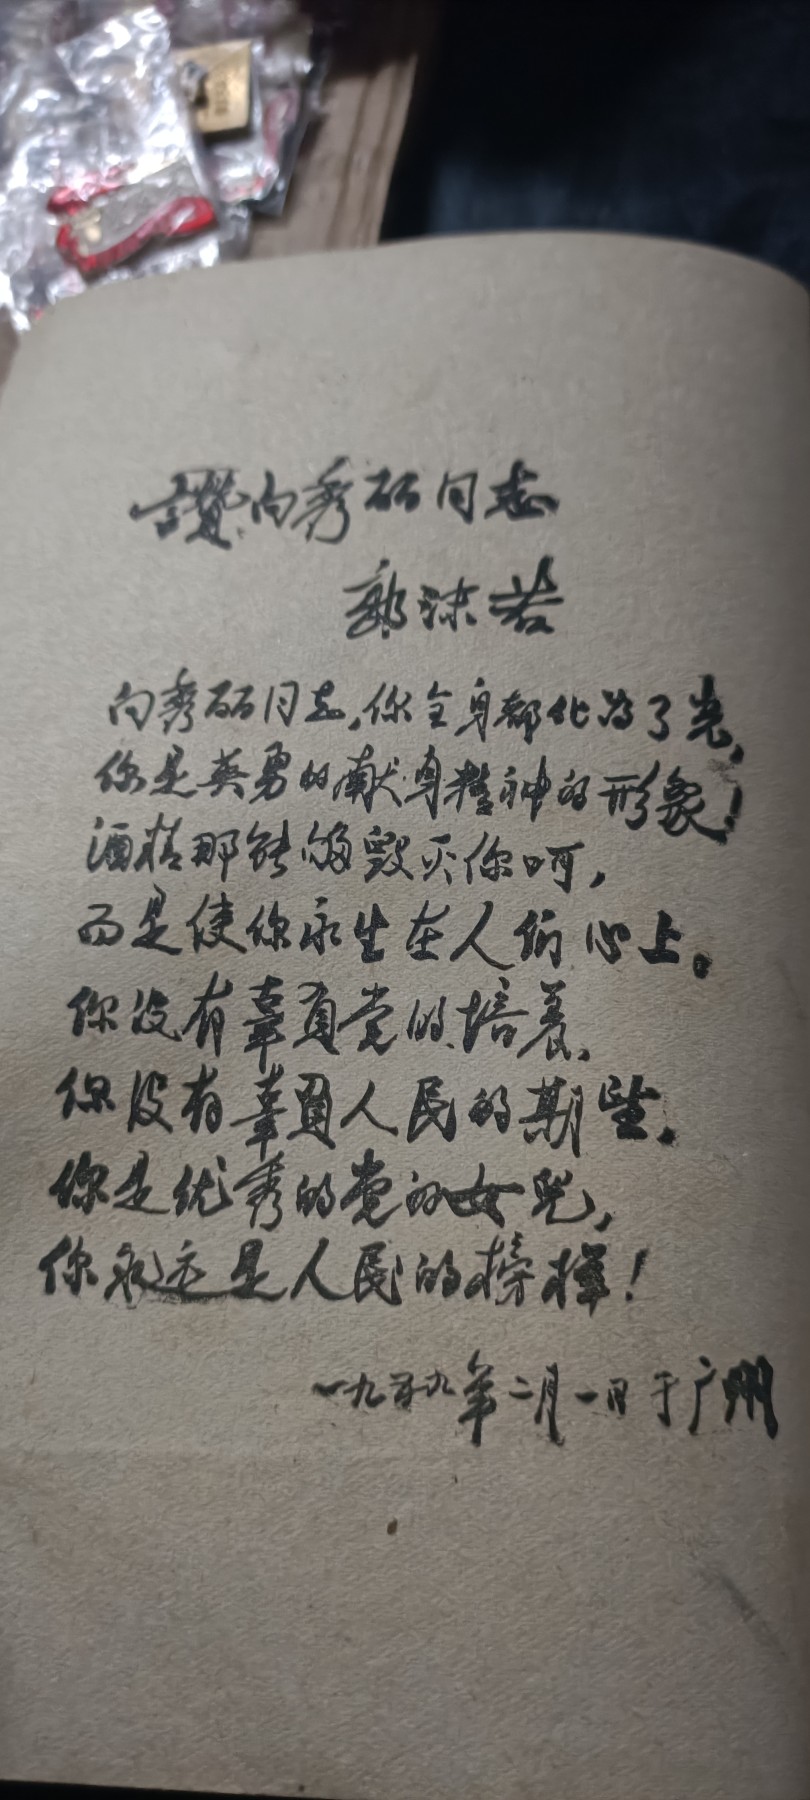 讚向秀丽同志
郭沫若
向秀丽同志,你全身都化为了光,
你是英勇的献身精神的形象!
酒精那能够毁灭你呵,
而是使你永生在人们心上。
你没有辜負党的培养,
你没有辜負人民的期望,
你是优秀的党的女兒,
你永远是人民的榜样!
一九五九年二月一日于广州